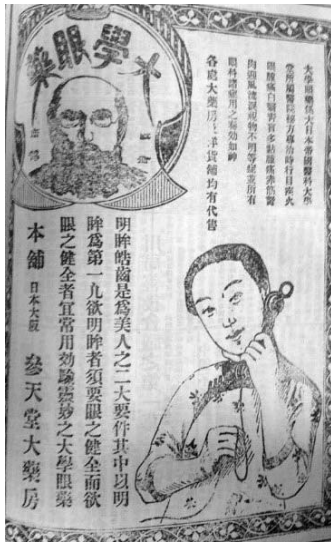 大學眼藥
大學眼藥係大日本帝國醫科大學
堂所屬醫院方專治時行目疾火
眼腫痛白翳青盲多粘腫痛赤筋瞖
肉迎風流淚視物不明等症並所有
眼科諸症用之奏効如神
各處大藥房洋貨舖均有代售
明眸皓齒是爲美人之二大要件其中以明
眸爲第一凡欲明眸者須要眼之健全而欲
眼之健全者宜常用効驗靈妙之大學眼藥
本舖 日本大阪 參天堂大藥房